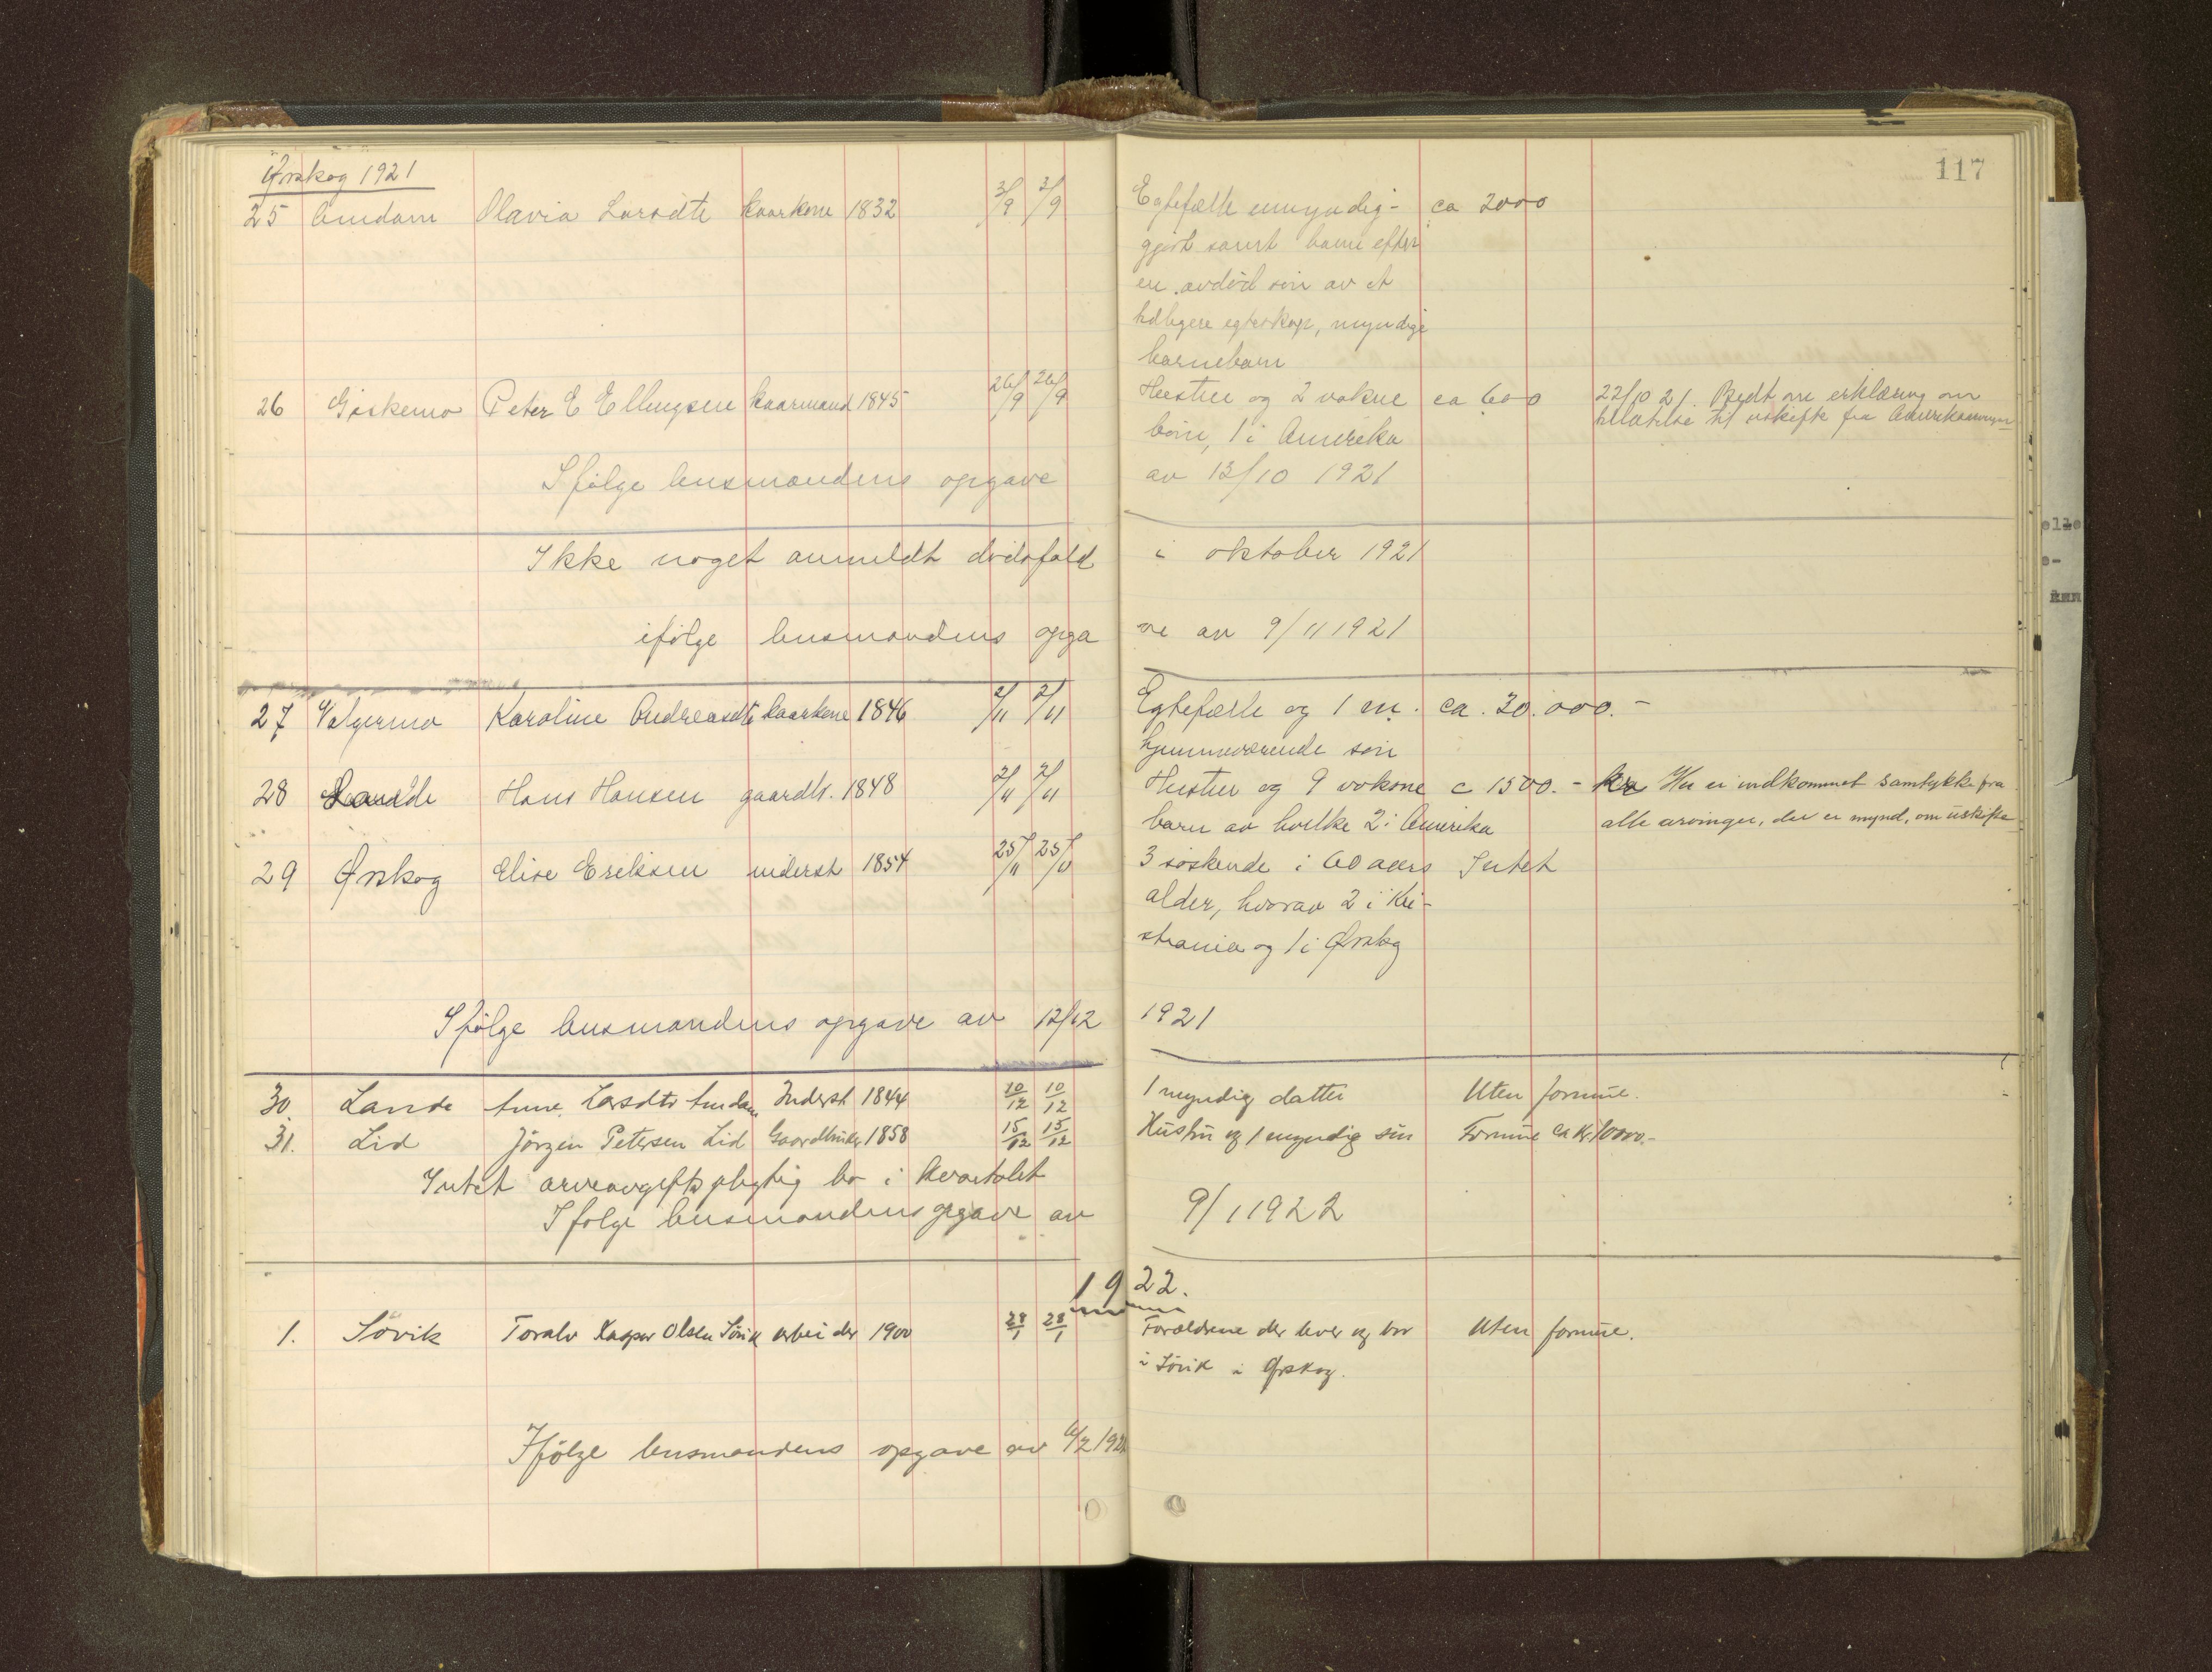 117
Ørskog 1921
25 Amdam Olavia Larsdtr kaarkone 1832 3/9 3/9 Egtefælle umyndig- ca 2000
gjort samt barn efter
en avdød søn av et
tidligere egteskap, myndige
barnebarn
26 Giskemo Peter E Ellingsen kaarmand 1845 26/9 26/9 Hustru og 2 voksne ca 600 22/10 21. Bedt om erklæring om
børn, 1 i Amerika tillatelse til uskifte fra
Ifølge lensmandens opgave av 13/10 1921
Ikke noget anmeldt dødsfald i oktober 1921
ifølge lensmandens opgave av 9/11 1921
27 Valgermo Karoline Andreasdtr kaarkone 1846 2/11 2/11 Egtefælle og 1 m. ca. 20.000.-
hjemmeværende søn
28 Landde Hans Hansen gaardbr. 1848 2/11 2/11 Hustru og 9 voksne c 1500.- Her er indkommet samtykke fra
barn av hvilke 2 i Amerika alle arvinger, der er mynd, om uskifte
29 Ørskog Elise Eriksen inderst 1854 25/11 25/11 3 søskende i 60 aars Intet
alder, hvorav 2 i Kri-
stiania og 1 i Ørskog
Ifølge lensmandens opgave av 12/12 1921
30. Lande Anne Larsdtr Amdam Inderst 1844 10/12 10/12 1 myndig datter Uten formue.
31. Lid Jørgen Petersen Lid Gaardbruker 1858 15/12 15/12 Hustru og 1 myndig søn Formue ca kr. 10000.-
Intet arveavgiftspligtig bo i kvartalet
Ifølge lensmandens opgave av 9/1 1922
1922.
1. Søvik Toralv Kaspar Olsen Søvik arbeider 1900 28/1 28/1 Forældrene der lever og bor Uten formue.
i Søvik i Ørskog.
Ifølge lensmandens opgave av 6/2 1922
elle
e-